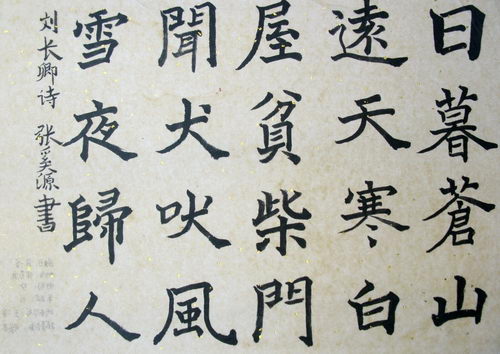 日暮蒼山
遠天寒白
屋貧柴門
聞犬吠風
雪夜歸人
刘长卿诗 张奚源書